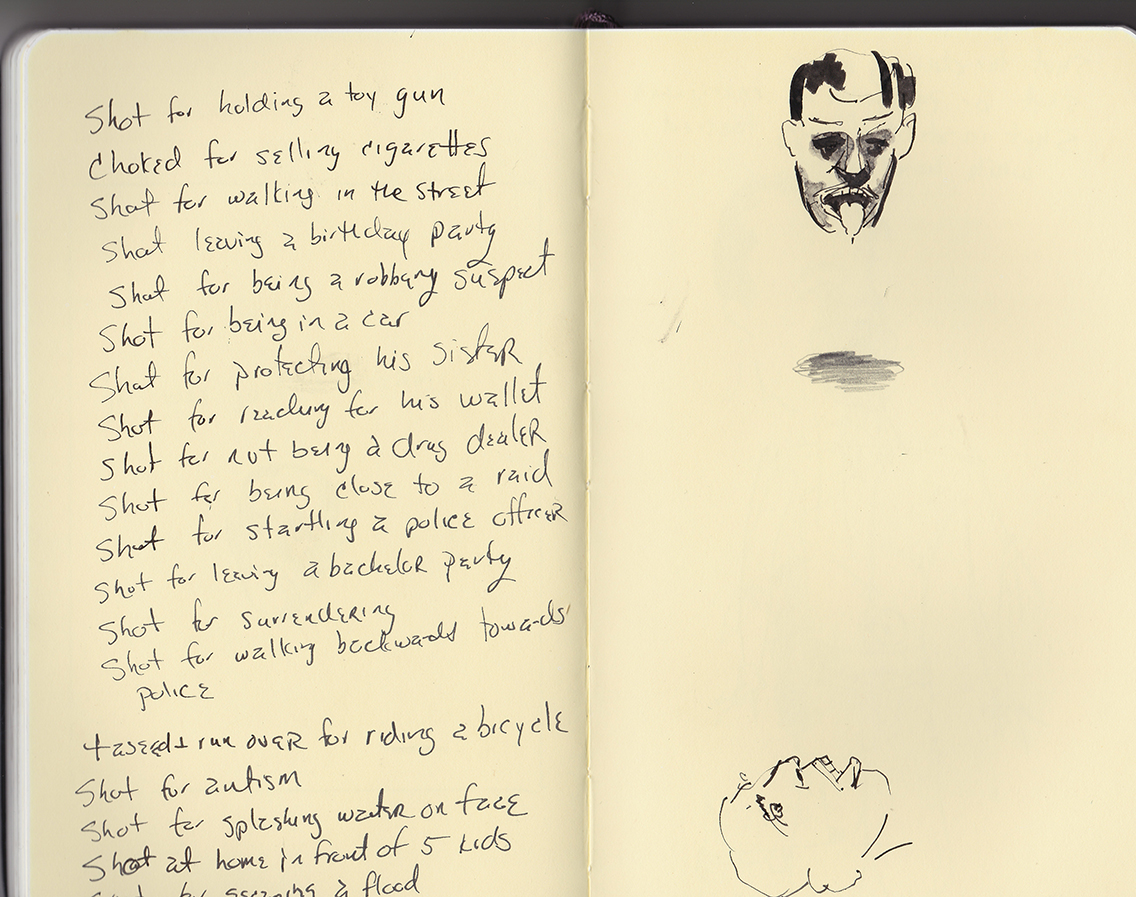 Shot for holding a toy gun
Choked for selling cigarettes
Shot for walking in the street
Shot leaving a birthday party
Shot for being a robbery suspect
Shot for being in a car
Shot for protecting his sister
Shot for reaching for his wallet
Shot for not being a drug dealer
Shot for being close to a raid
Shot for startling a police officer
Shot for leaving a bachelor party
Shot for surrendering
Shot for walking backwards towards
police
tased + run over for riding a bicycle
Shot for autism
Shot for splashing water on face
Shot at home in front of 5 kids
a flood